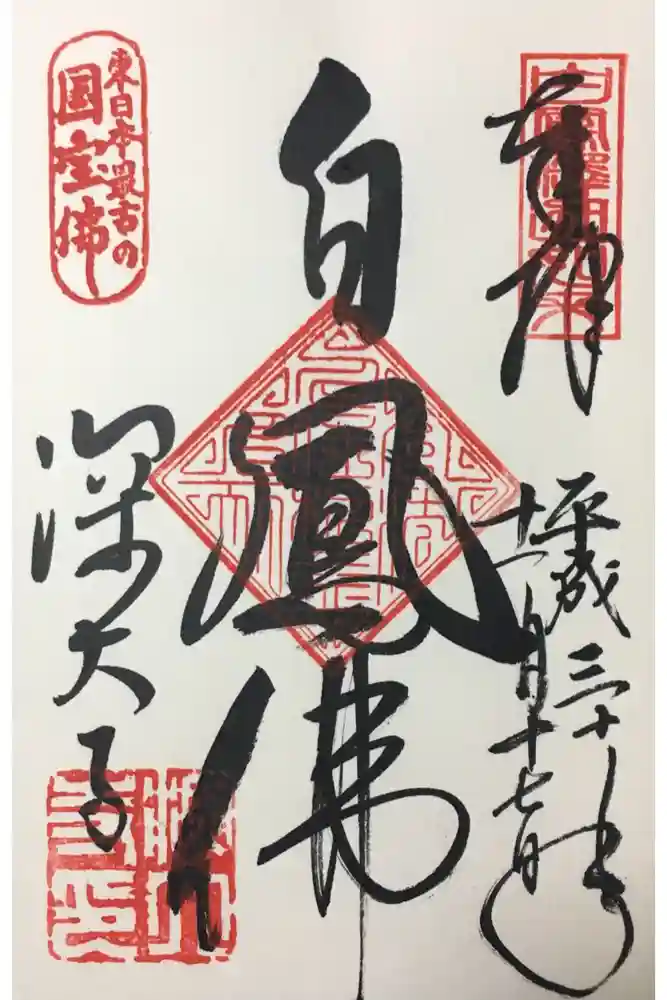 奉拝
平成三十年
十二月十七日
白鳳佛
深大寺
東日本最古の
国宝佛